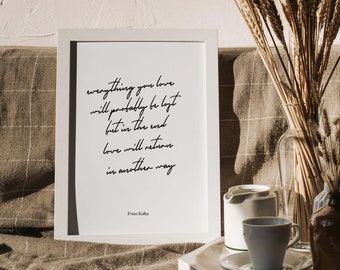 everything you love
will probably be lost
but in the end
love will return
in another way
Franz Kafka